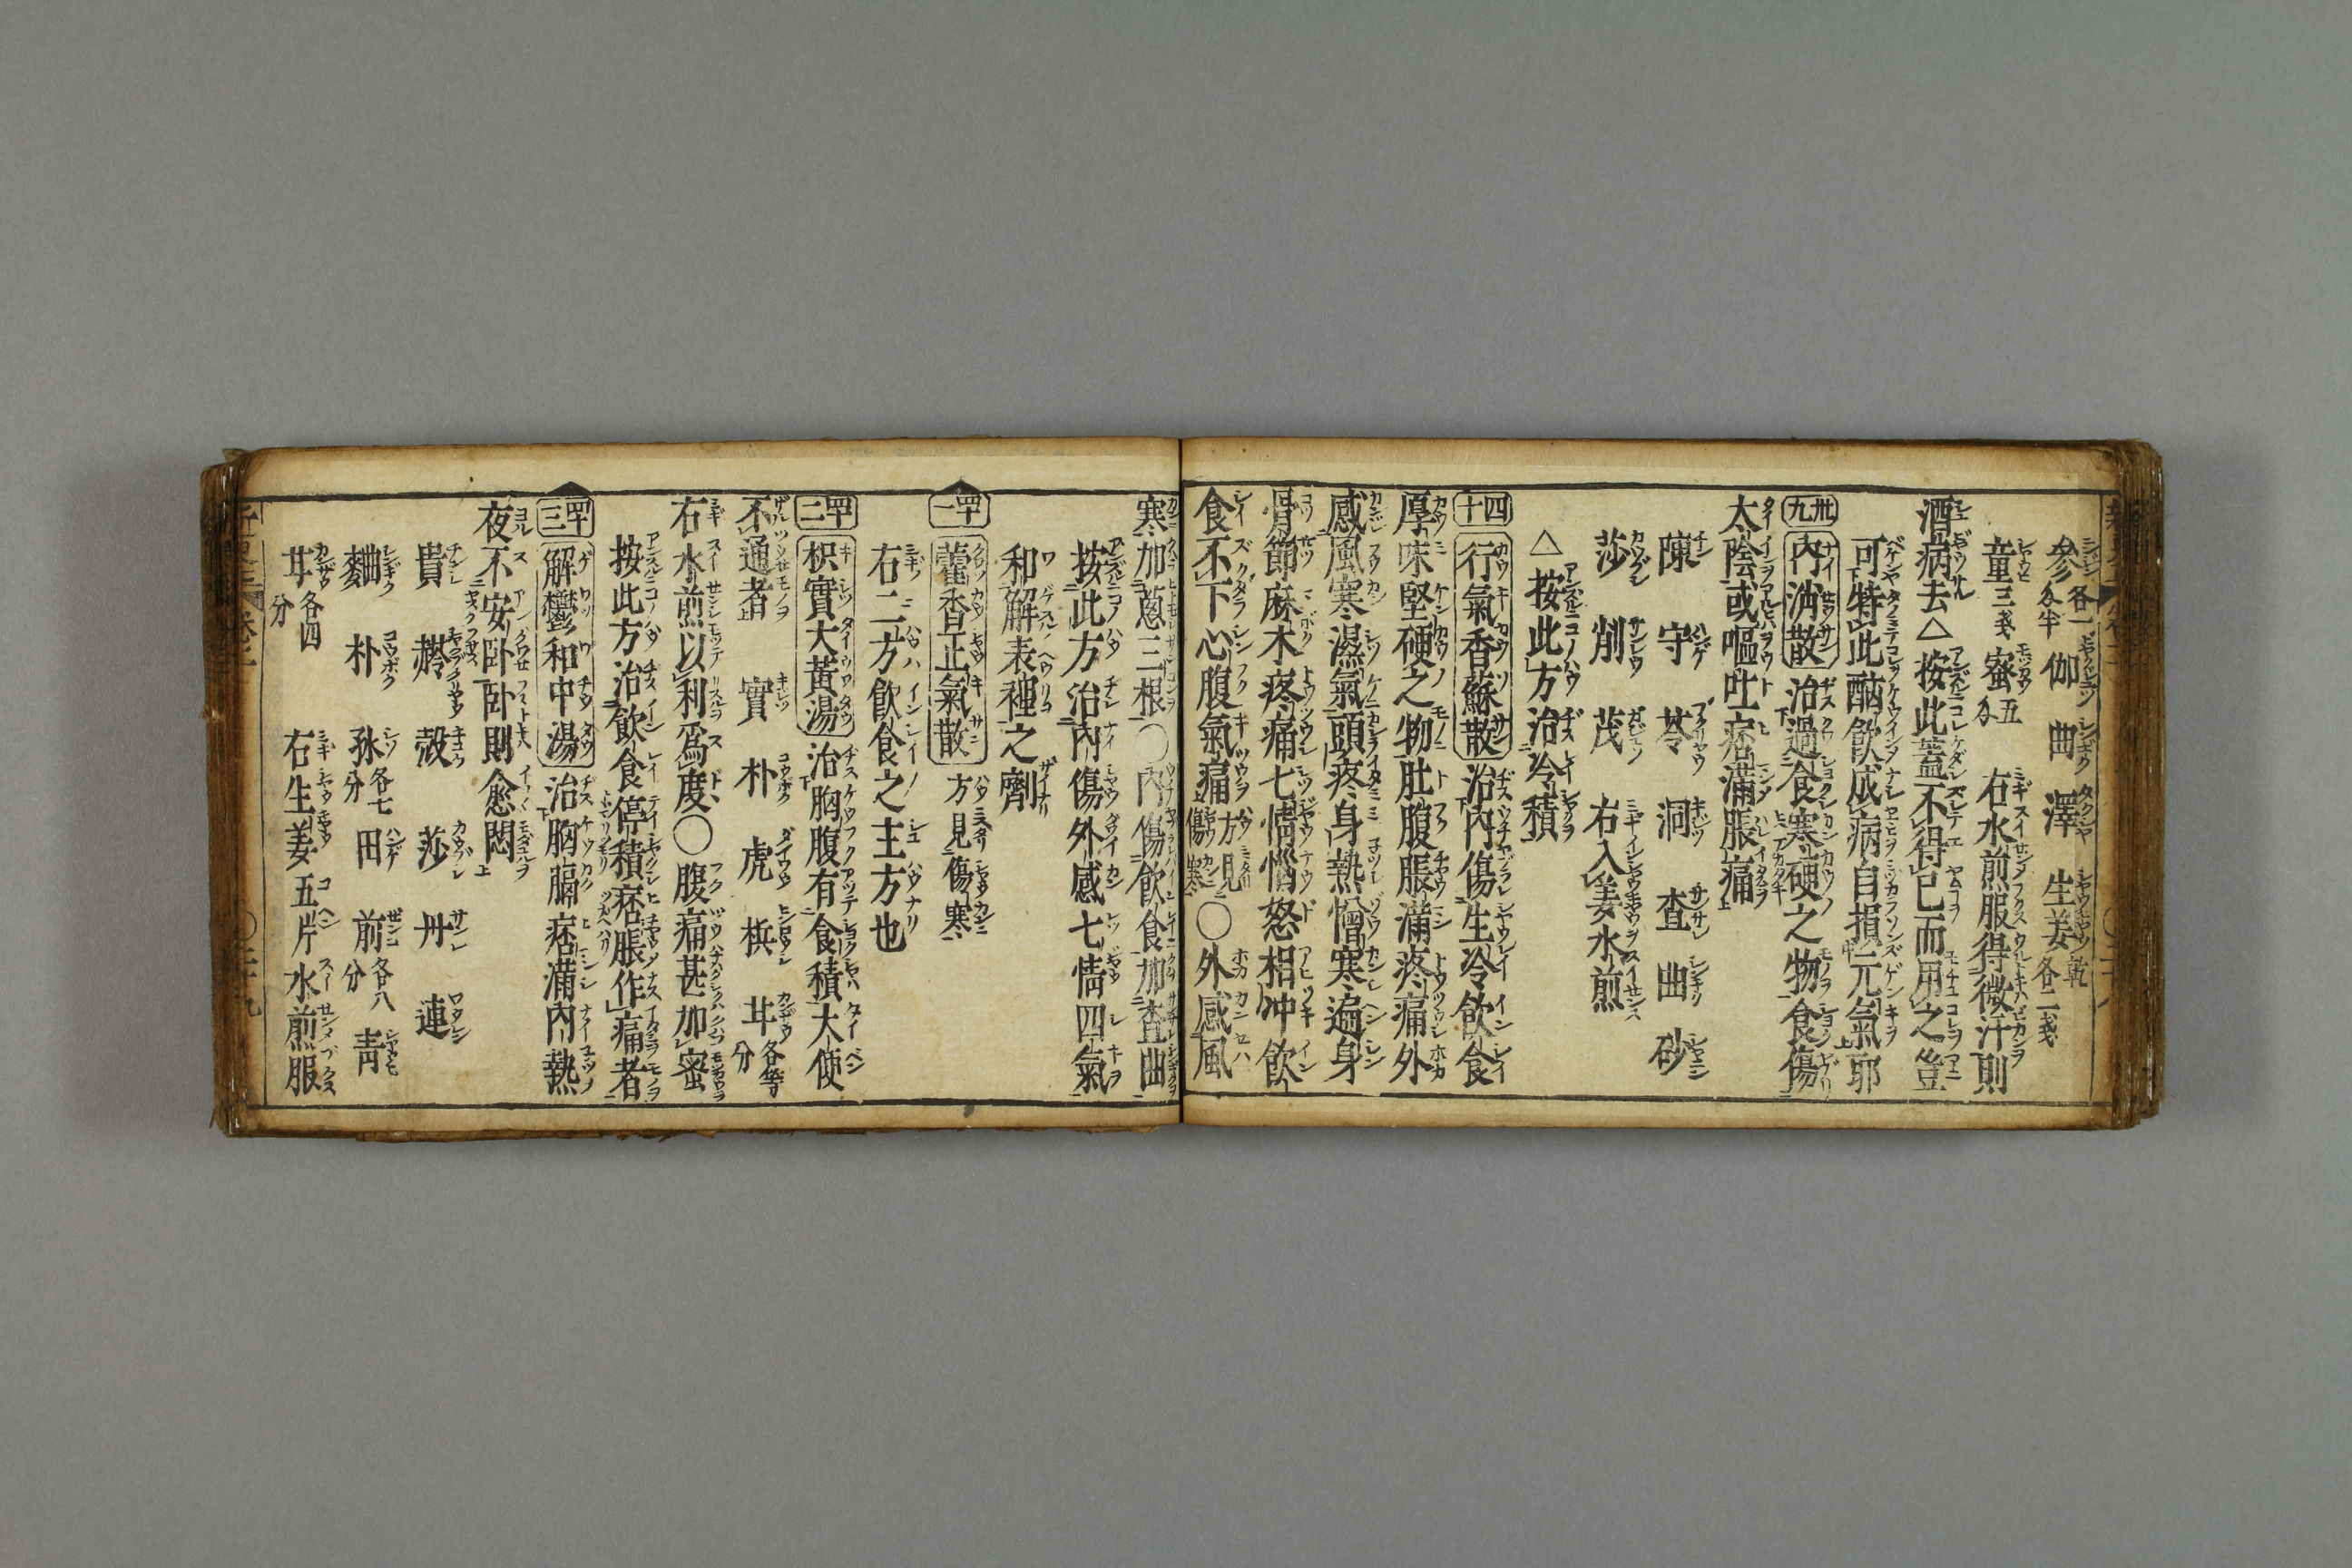 參各一戔半 伽 曲 澤 生姜乾各二戔
童三戔 蜜五分 右水煎服得微汗則
酒病去△按此蓋不得已而用之豈
可特此酒飲成病自損元氣耶
卅九 內消散 治過食寒硬之物食傷
太陰或嘔吐痞滿脹痛
陳 守 苓 洞 査 曲 砂
莎 削 茂 右入姜水煎
△按此方治冷積
四十 行氣香蘇散 治內傷生冷飲食
厚味堅硬之物肚腹脹滿疼痛外
感風寒濕氣頭疼身熱憎寒遍身
骨節麻木疼痛七情惱怒相冲飲
食不下心腹氣痛方見傷寒○外感風
寒加蔥三根○內傷飲食加査曲
按此方治內傷外感七情四氣
和解表裡之劑
四十一 藿香正氣散 方見傷寒
右二方飲食之主方也
四十二 枳實大黃湯 治胸腹有食積大便
不通者 實 朴 虎 梹 甘各等分
右水煎以利爲度○腹痛甚加蜜
按此方治飲食停積痞脹作痛者
四十三 解鬱和中湯 治胸膈痞滿內熱
夜不安臥臥則愈悶
貴 苓 殼 莎 丹 連
麯 朴 各七分 田 前各八分 青
甘各四分 右生姜五片水煎服